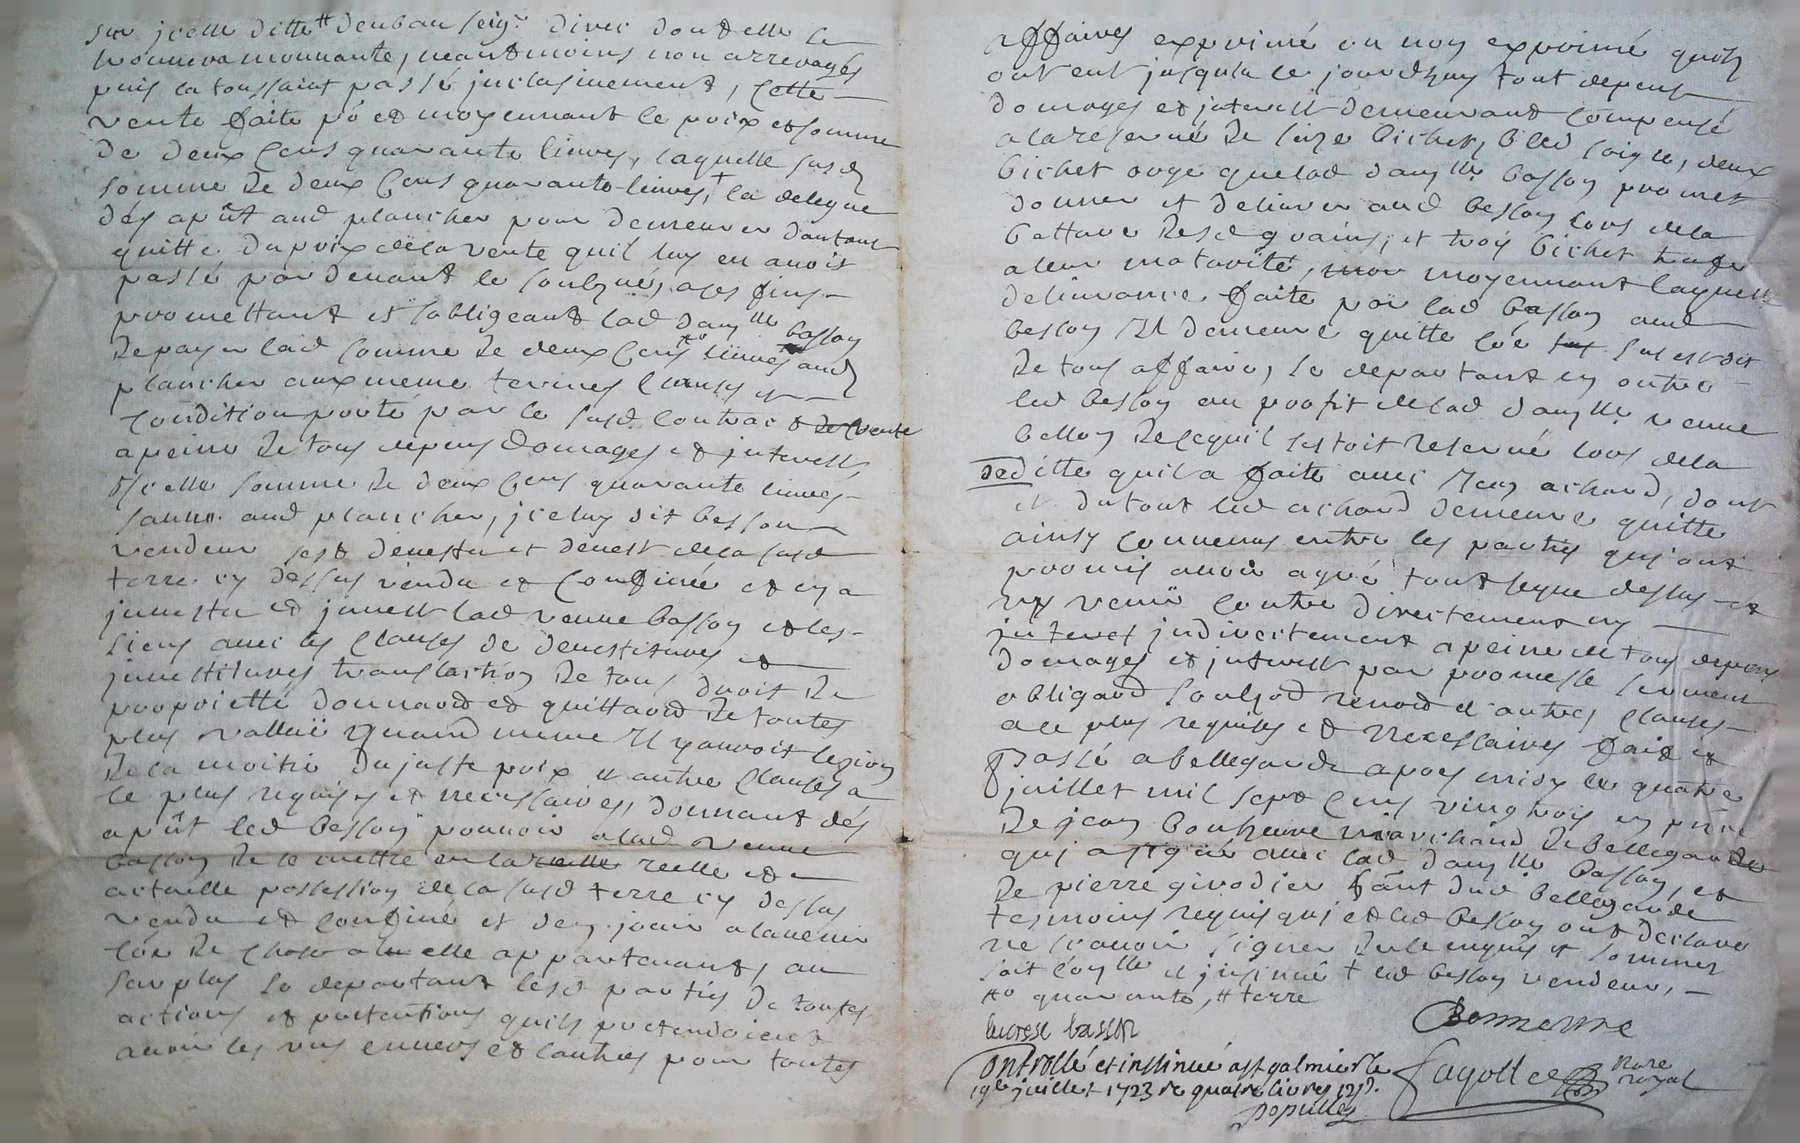 sur jcelle ditte # deub au seigr direc dont elle se
trouvera mouvante, neantmoins non arreragés
puis la toussaint passé jnclusivement, cette
vente faite pr et moyennant le prix et somme
de deux cens quarante livres, laquelle susd
somme de deux cens quarante livres, + la delegue
dés apnt aud plancher pour demeurer dautant
quitte du prix de la vente quil luy en avoit
passé par devant le soubzné, a ces fins
promettant et sobligeant lad dauylle basson
de payer lad somme de deux cens #o livres aud
plancher aux meme termes clauses et
condition porté par le susd contract de vente
a peine de tous depens domages et jnterests
dicelle somme de deux cens quarante livres
sauno. aud plancher, jceluy dit besson
vendeur sest devestu et devest de la susd
terre cy dessus vendu et confinée et en a
jnvestu et jnvest lad veuve basson et les
siens avec les clauses de devestitures et
jnvestitures translation de tous droit de
proprietté donnand et quittand de toutes
plus valleü quand meme Il y auroit lezion
de la moitié du juste prix et autre clauses a
ce plus requises et necessaires, donnant dés
apnt led besson pouvoir a lad veuve
basson de se mettre en la reelle et
actuelle possession de la susd terre cy dessus
vendu et confiné et den jouir a lavenir
coe de chose a elle appartenant, au
surplus se departant lesd parties de toutes
actions et pretentions quils pretendoient
avoir les uns envers et contres pour toutes
affaires exprimé ou non exprimé quilz
ont eut jusqua ce jourdhuy tout depens
domages et jnterest demeurant compensé
a la reservé de seize bichets bled seigle, deux
bichet orge que lad dauylle basson promet
donner et delivrer aud besson lors de la
batture desd grains, et trois bichet
a leur maturité, moyennant laquelle
delivrance faite par lad basson aud
besson Il demeure quitte coe susest dit
de tous affaire, se departant en outre
led besson au profit de lad dauylle veuve
basson de cequil sestoit reservé lors de la
dedditte quil a faite avec Jean achard, dont
et du tout led achard demeure quitte
ainsy convenus entre les parties qui ont
promis avoir agreé tout ceque dessus et
ny venir contre directement ny
jndirectement a peine de tous depens
domages et jnterest par promesse serment
obligaond soubzod renond et autres clauses
a ce plus requises et necessaires fait et
passé a bellegarde apres midy le quatre
juillet mil sept cens vingt trois en pnce
de jean bonnevie marchand de bellegarde
qui a signé avec lad dauylle basson, et
de pierre girodier hant dud bellegarde
tesmoins requis qui et led besson ont declaré
ne scavoir signer de ce enquis et sommez
soit coylle et jnsinué + led besson vendeur,
#o quarante, # terre
lucrese basson
Bonnevie
Controllé et insinué a st galmier le
19e juillet 1723 re quatre livres 12s.
populle
fayolle
nore
royal